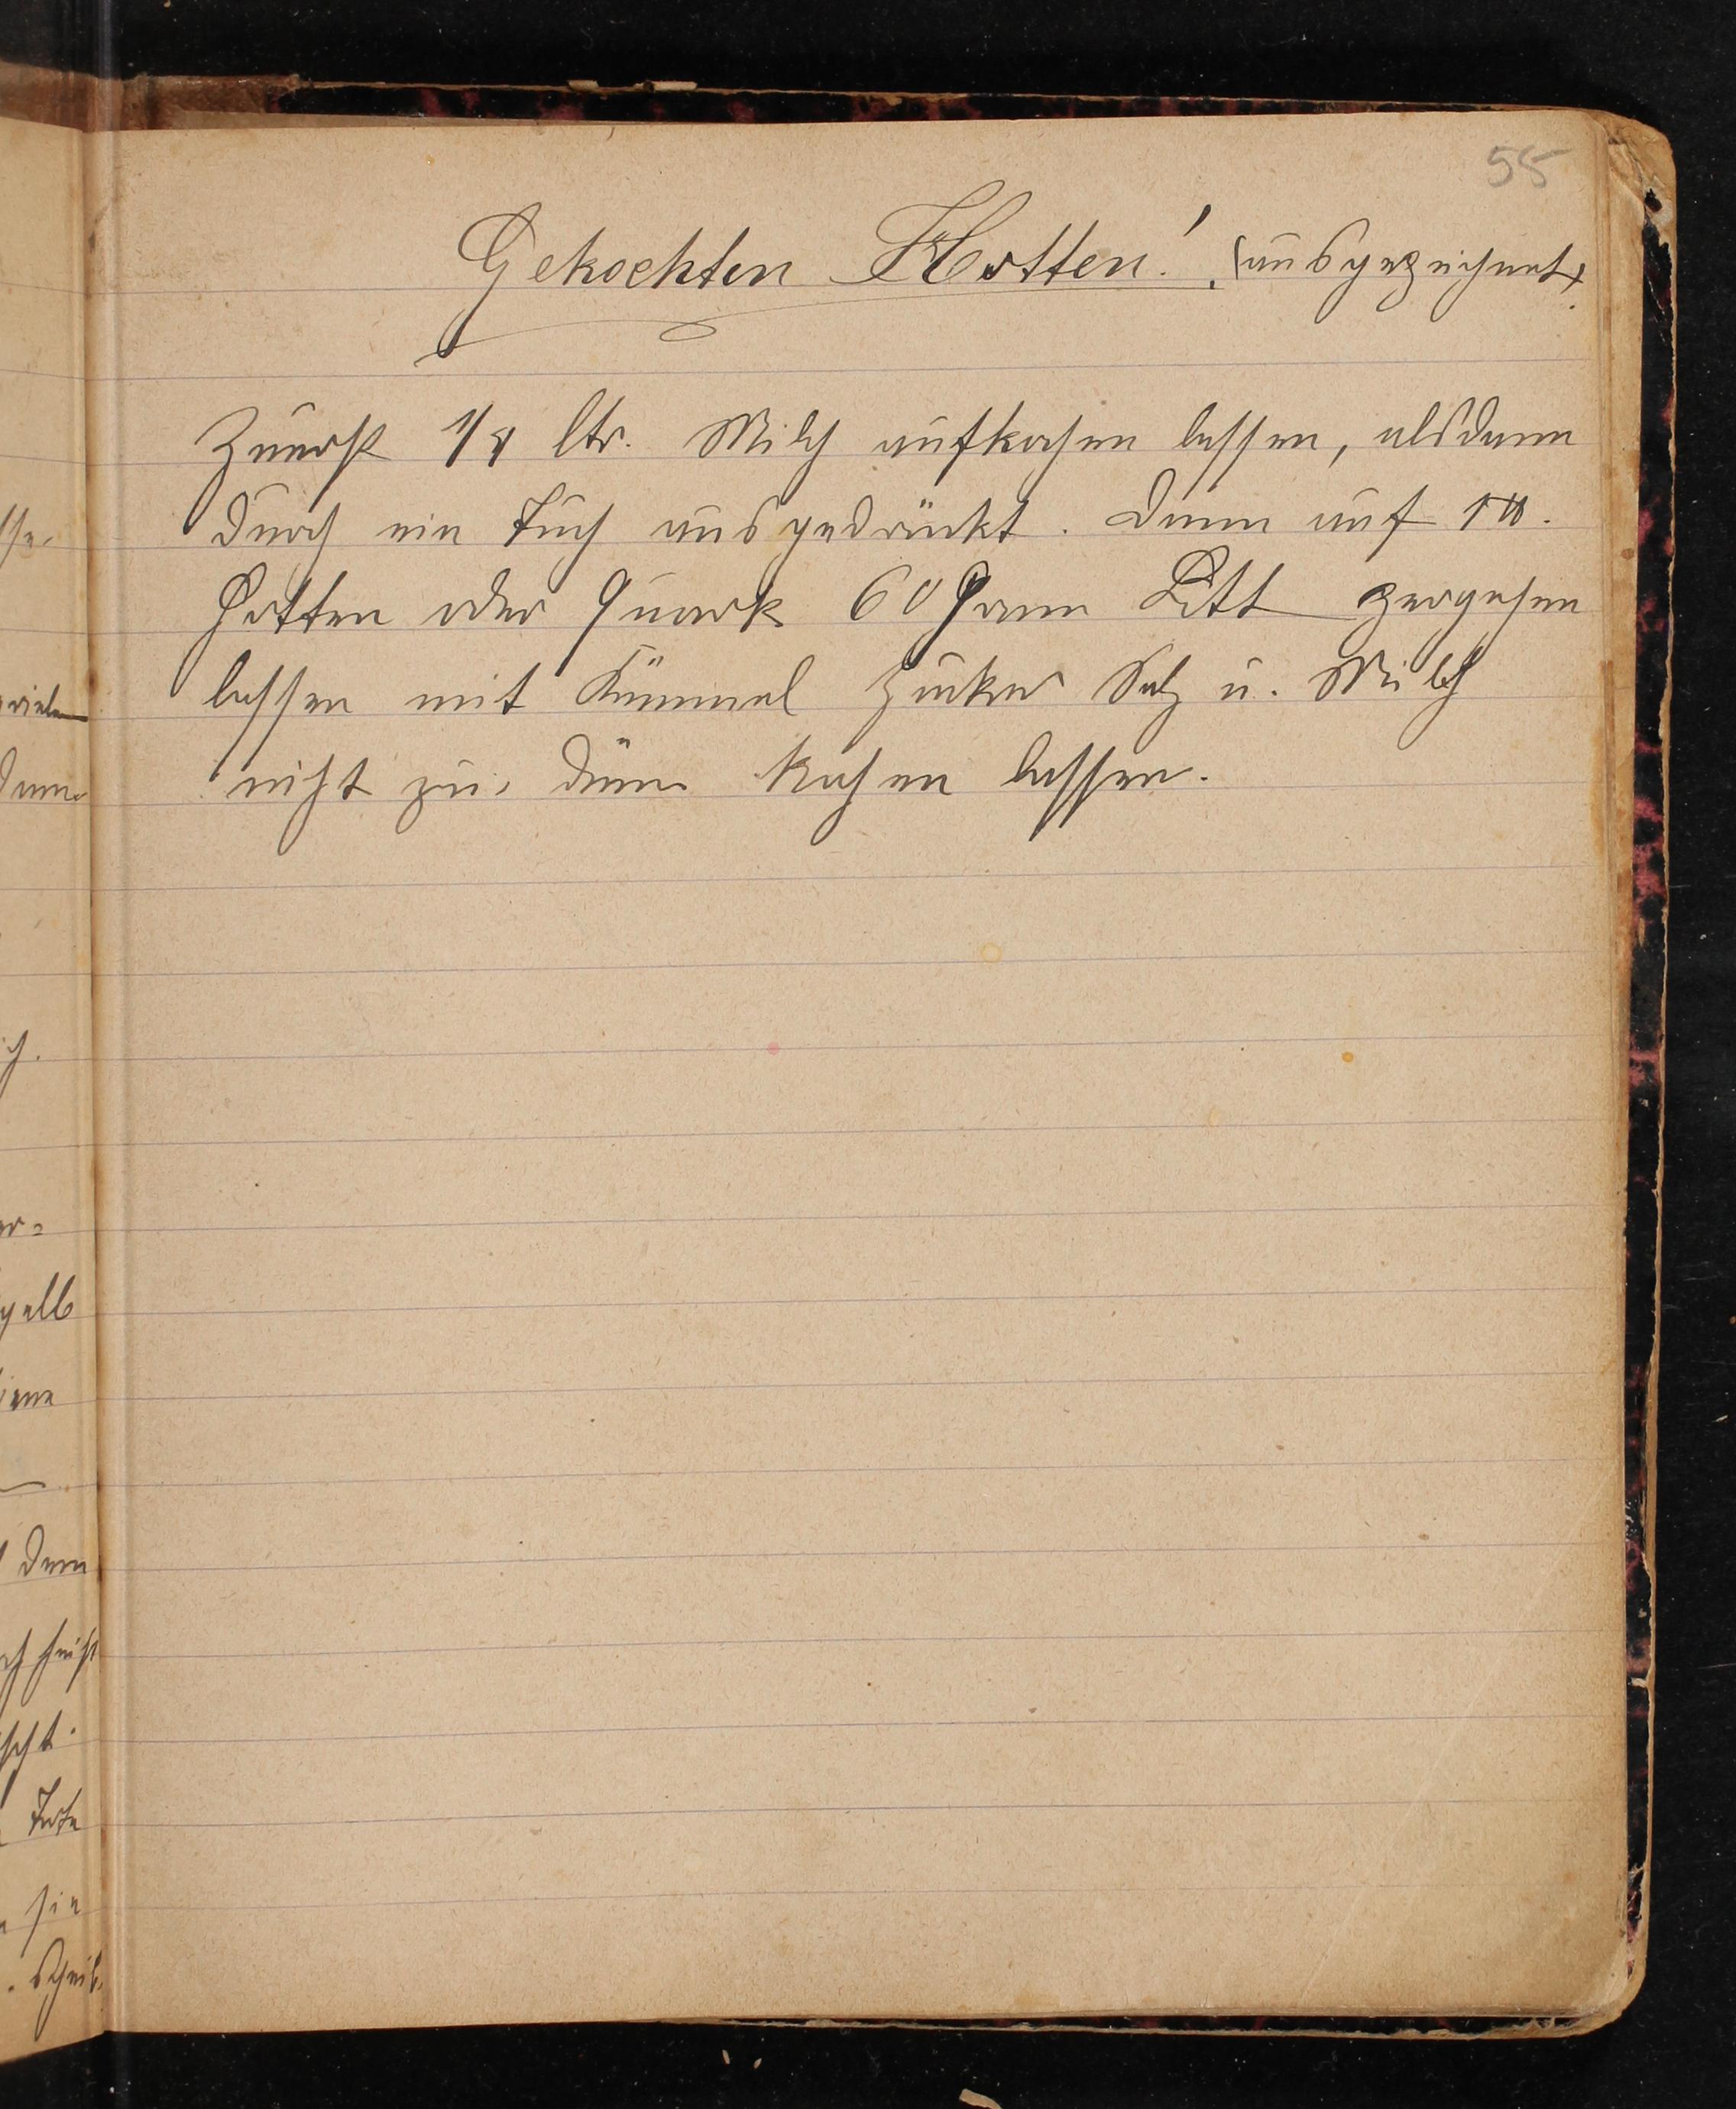 55
Gekochten Hotten! (ausgezeichnet).
Zuerst 1/4 ltr. Milch aufkochen lassen, alsdann
durch ein Tuch ausgedrückt. Dann auf 1 ℔.
Hotten oder Quark 60 Gramm Butt zergehen
lassen mit Kümmel Zucker Salz u. Milch
nicht zu dünn kochen lassen.